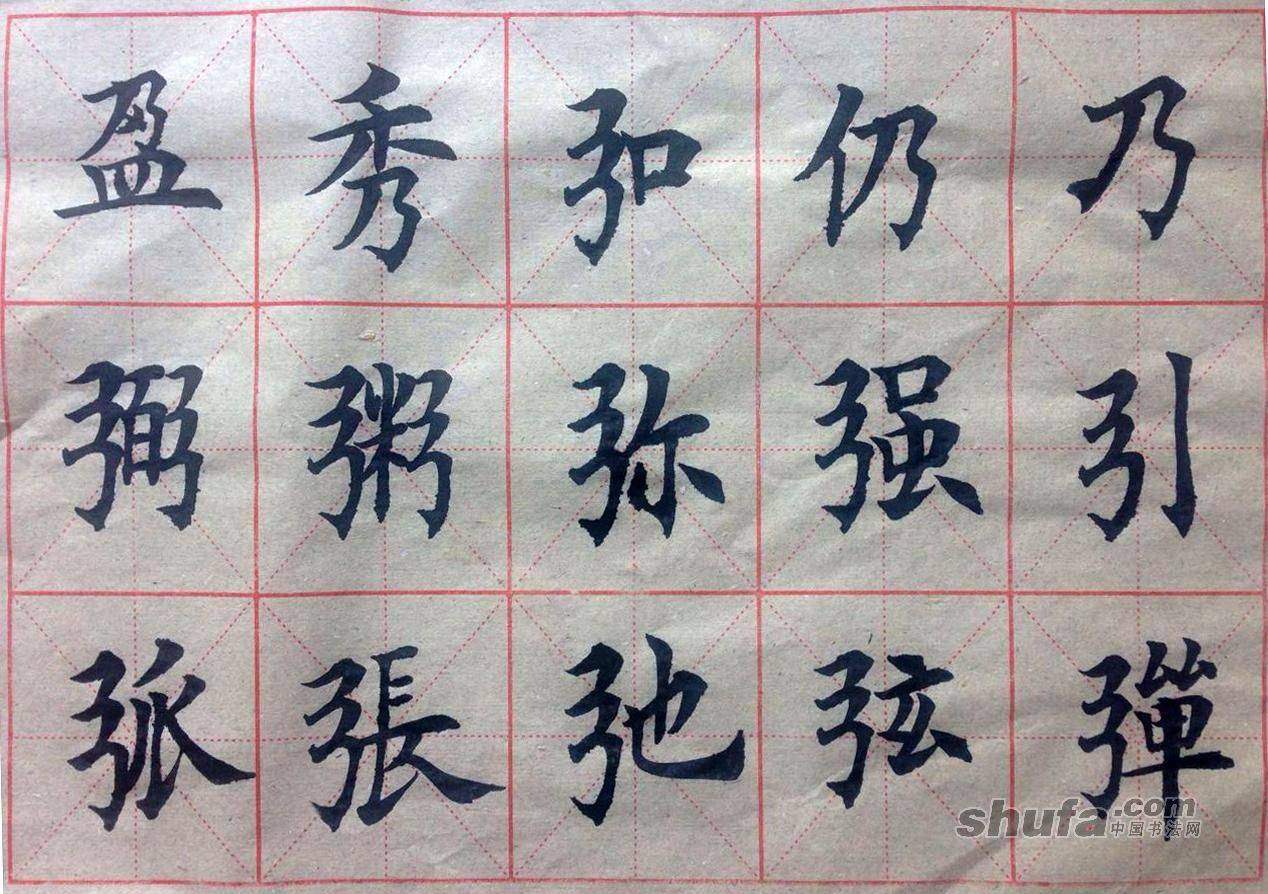 乃仍𢎞秀盈
引强弥粥弼
彈弦弛張弧
shufa.com
中国书法网